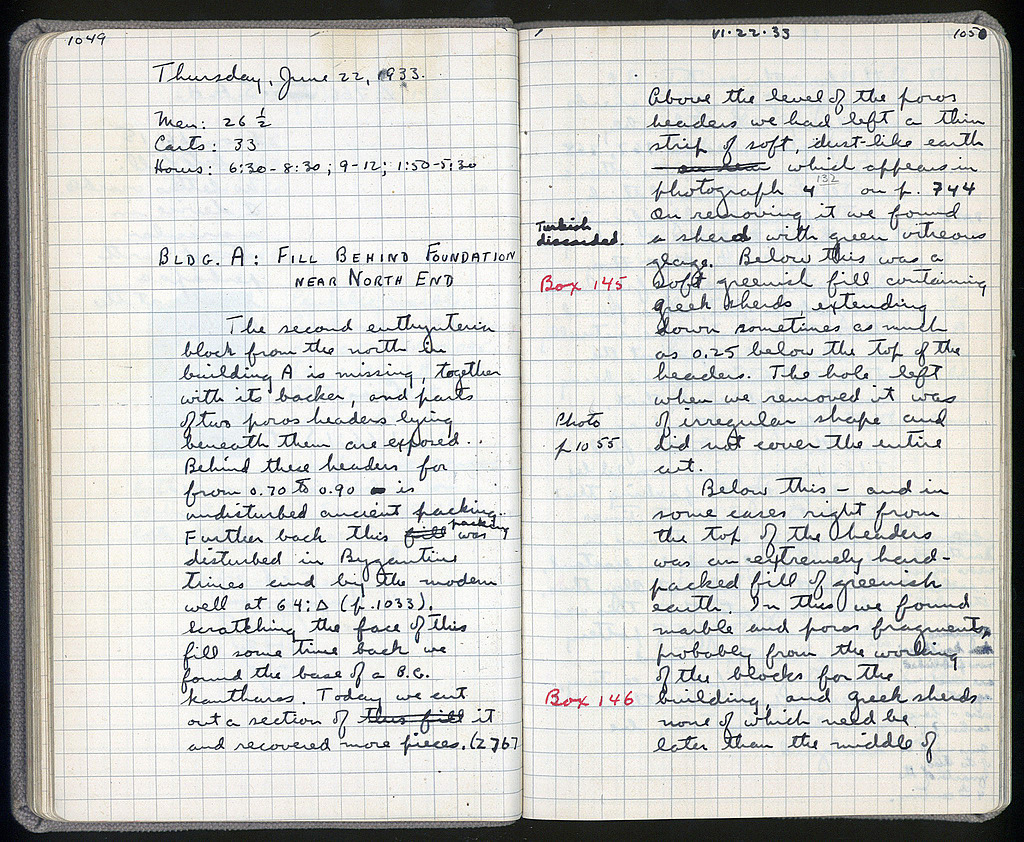 1049
Thursday, June 22, 1933.
Men: 26 ½
Carts: 33
Hours: 6:30-8:30; 9-12; 1:50-5:30
BLDG. A: FILL BEHIND FOUNDATION
NEAR NORTH END
The second euthynteria
block from the north in
building A is missing, together
with its backer, and parts
of two poros headers lying
beneath them are exposed..
Behind these headers for
from 0.70 to 0.90 is
undisturbed ancient packing.
Further back this fill packing was
disturbed in Byzantine
times and by the modern
well at 64:Δ (p.1033).
Scratching the face of this
fill some time back we
found the base of a B.G.
kantharos. Today we cut
out a section of this fill it
and recovered more pieces. (2767
VI·22·33
1050
Above the level of the poros
headers we had left a thin
strip of soft, dust-like earth
which appears in
photograph 4 132 on p. 744
On removing it we found
Turkish
discarded.
a sherd with green vitreous
glaze. Below this was a
Box 145
soft greenish fill containing
Greek sherds, extending
down sometimes as much
as 0.25 below the top of the
headers. The hole left
when we removed it was
Photo
p 1055
of irregular shape and
did not cover the entire
cut.
Below this - and in
some cases right from
the top of the headers
was an extremely hard-
packed fill of greenish
earth. In this we found
marble and poros fragments,
probably from the working
of the blocks for the
Box 146
building, and Greek sherds
none of which need be
later than the middle of